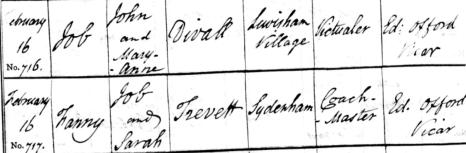 ebruary 16 No. 716. Job John and Mary-Anne Divall Lewisham Village Victualer Ed: Offord Vicar
February 16 No. 717. Fanny Job and Sarah Trevett Sydenham Coach-Master Ed. Offord Vicar